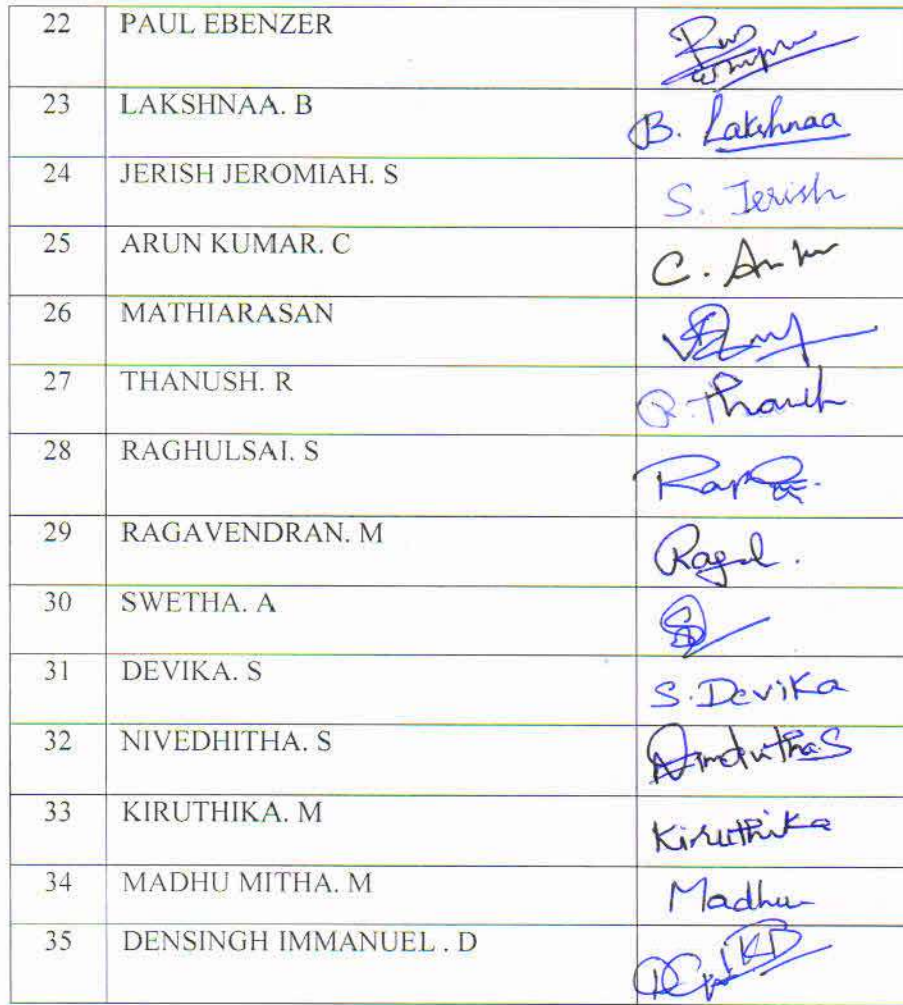 22 PAUL EBENZER
23 LAKSHNAA. B B. Lakshnaa
24 JERISH JEROMIAH. S S. Jerish
25 ARUN KUMAR. C C.
26 MATHIARASAN
27 THANUSH. R R.
28 RAGHULSAI. S
29 RAGAVENDRAN. M
30 SWETHA. A
31 DEVIKA. S S. Devika
32 NIVEDHITHA. S
33 KIRUTHIKA. M Kiruthika
34 MADHU MITHA. M Madhu
35 DENSINGH IMMANUEL . D